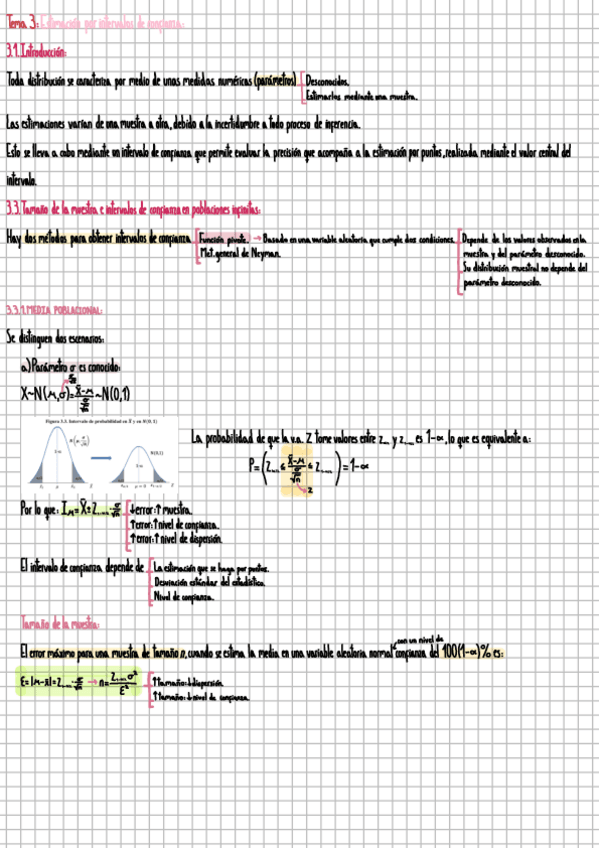 Tema 3: Estimación por intervalos de confianza:
3.1. Introducción:
Toda distribución se caracteriza por medio de unas medidas numéricas (parámetros) Desconocidos.
Estimarlos mediante una muestra.
Las estimaciones varían de una muestra a otra, debido a la incertidumbre a todo proceso de inferencia.
Esto se lleva a cabo mediante un intervalo de confianza que permite evaluar la precisión que acompaña a la estimación por puntos, realizada mediante el valor central del
intervalo.
3.3. Tamaño de la muestra e intervalos de confianza en poblaciones infinitas:
Hay dos métodos para obtener intervalos de confianza Función pivote. → Basado en una variable aleatoria que cumple dos condiciones. Depende de los valores observados en la
muestra y del parámetro desconocido.
Met. general de Neyman.
Su distribución muestral no depende del
parámetro desconocido.
3.3.1. MEDIA POBLACIONAL:
Se distinguen dos escenarios:
a.) Parámetro σ es conocido:
X~N(μ,σ)= x̄-μ / σ/√n ~N(0,1)
Figura 3.3. Intervalo de probabilidad en X̄ y en N(0, 1)
N(0,1)
La probabilidad de que la v.a. Z tome valores entre z y z es 1-α, lo que es equivalente a:
P=(z ≤ x̄-μ / σ/√n ≤ z)=1-α
z
Por lo que: Iμ= X̄± z · σ/√n ↓error: ↑ muestra.
↑error: ↑nivel de confianza.
↑error: ↑nivel de dispersión.
El intervalo de confianza depende de La estimación que se haga por puntos.
Desviación estándar del estadístico.
Nivel de confianza.
Tamaño de la muestra:
El error máximo para una muestra de tamaño n, cuando se estima la media en una variable aleatoria normal con un nivel de confianza del 100(1-α)% es:
ε=|μ-x̄|=z · σ/√n → n= z σ² / ε² ↑tamaño: ↓dispersión.
↑tamaño: ↓nivel de confianza.